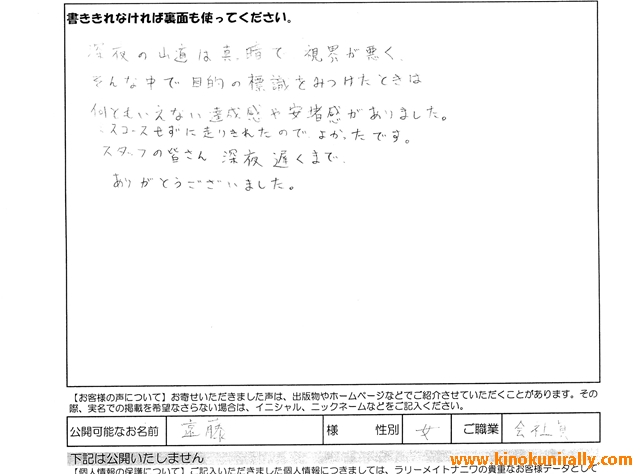 書ききれなければ裏面も使ってください。
深夜の山道は真っ暗で 視界が悪く、
そんな中で目的の標識をみつけたときは
何ともいえない達成感や安堵感がありました。
ミスコースせずに走りきれたので よかったです。
スタッフの皆さん 深夜遅くまで、
ありがとうございました。
【お客様の声について】お寄せいただきました声は、出版物やホームページなどでご紹介させていただくことがあります。その
際、実名での掲載を希望なさらない場合は、イニシャル、ニックネームなどをご記入ください。
公開可能なお名前 遠藤 様 性別 女 ご職業 会社員
下記は公開いたしません
www.kinokunirally.com
【個人情報の保護について】ご記入いただきました個人情報につきましては、ラリーメイトナニワの貴重なお客様データとして